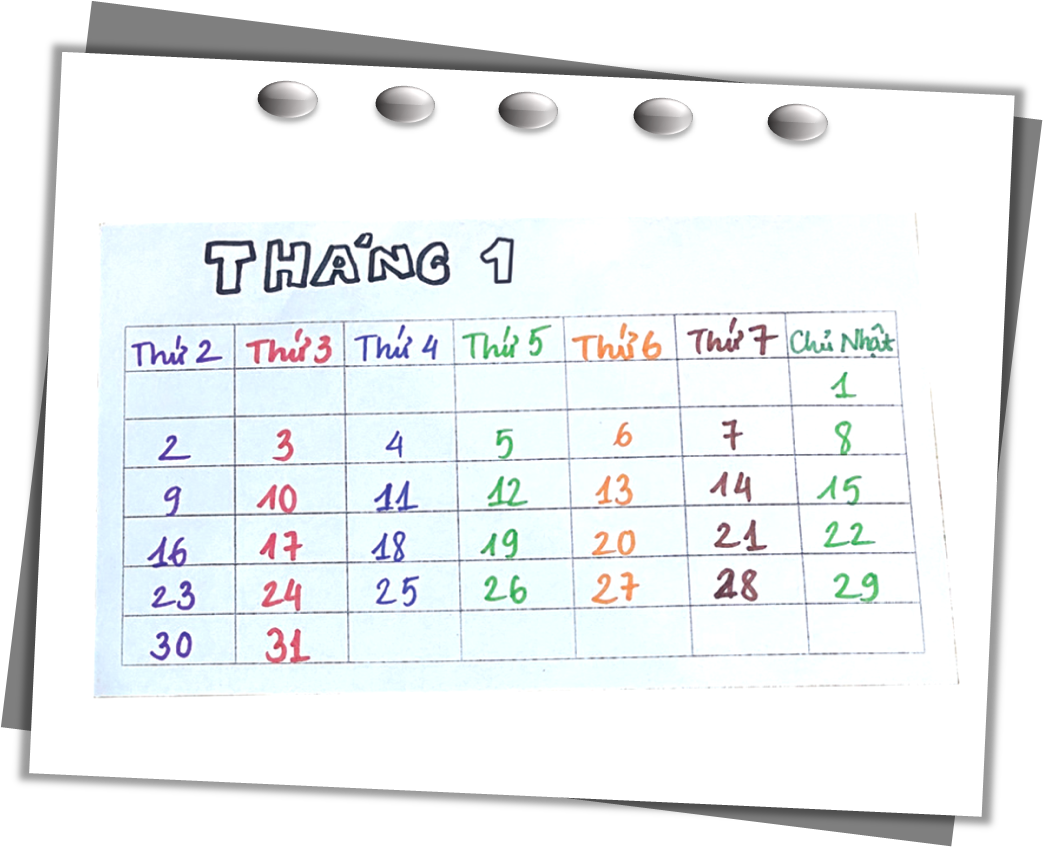 THÁNG 1
Thứ 2 Thứ 3 Thứ 4 Thứ 5 Thứ 6 Thứ 7 Chủ Nhật
1
2 3 4 5 6 7 8
9 10 11 12 13 14 15
16 17 18 19 20 21 22
23 24 25 26 27 28 29
30 31